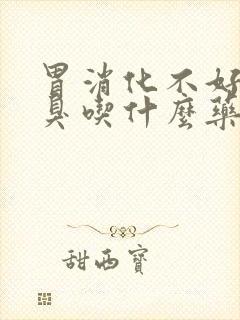 胃消化不好
臭喫什麼藥
甜西寶